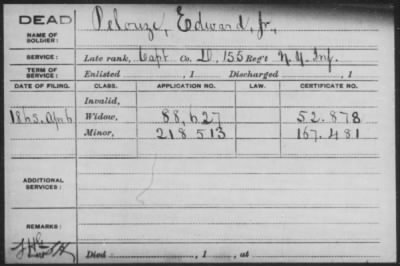 DEAD
NAME OF SOLDIER:
Pelouze, Edward, Jr.,
SERVICE:
Late rank, Capt Co. D, 155 Reg't N.Y. Inf.
TERM OF SERVICE:
Enlisted , 1 Discharged , 1
DATE OF FILING. CLASS. APPLICATION NO. LAW. CERTIFICATE NO.
Invalid,
1865, Apr 6 Widow, 88,627 52.878
Minor, 218513 167.481
ADDITIONAL SERVICES:
REMARKS:
Died , 1 , at